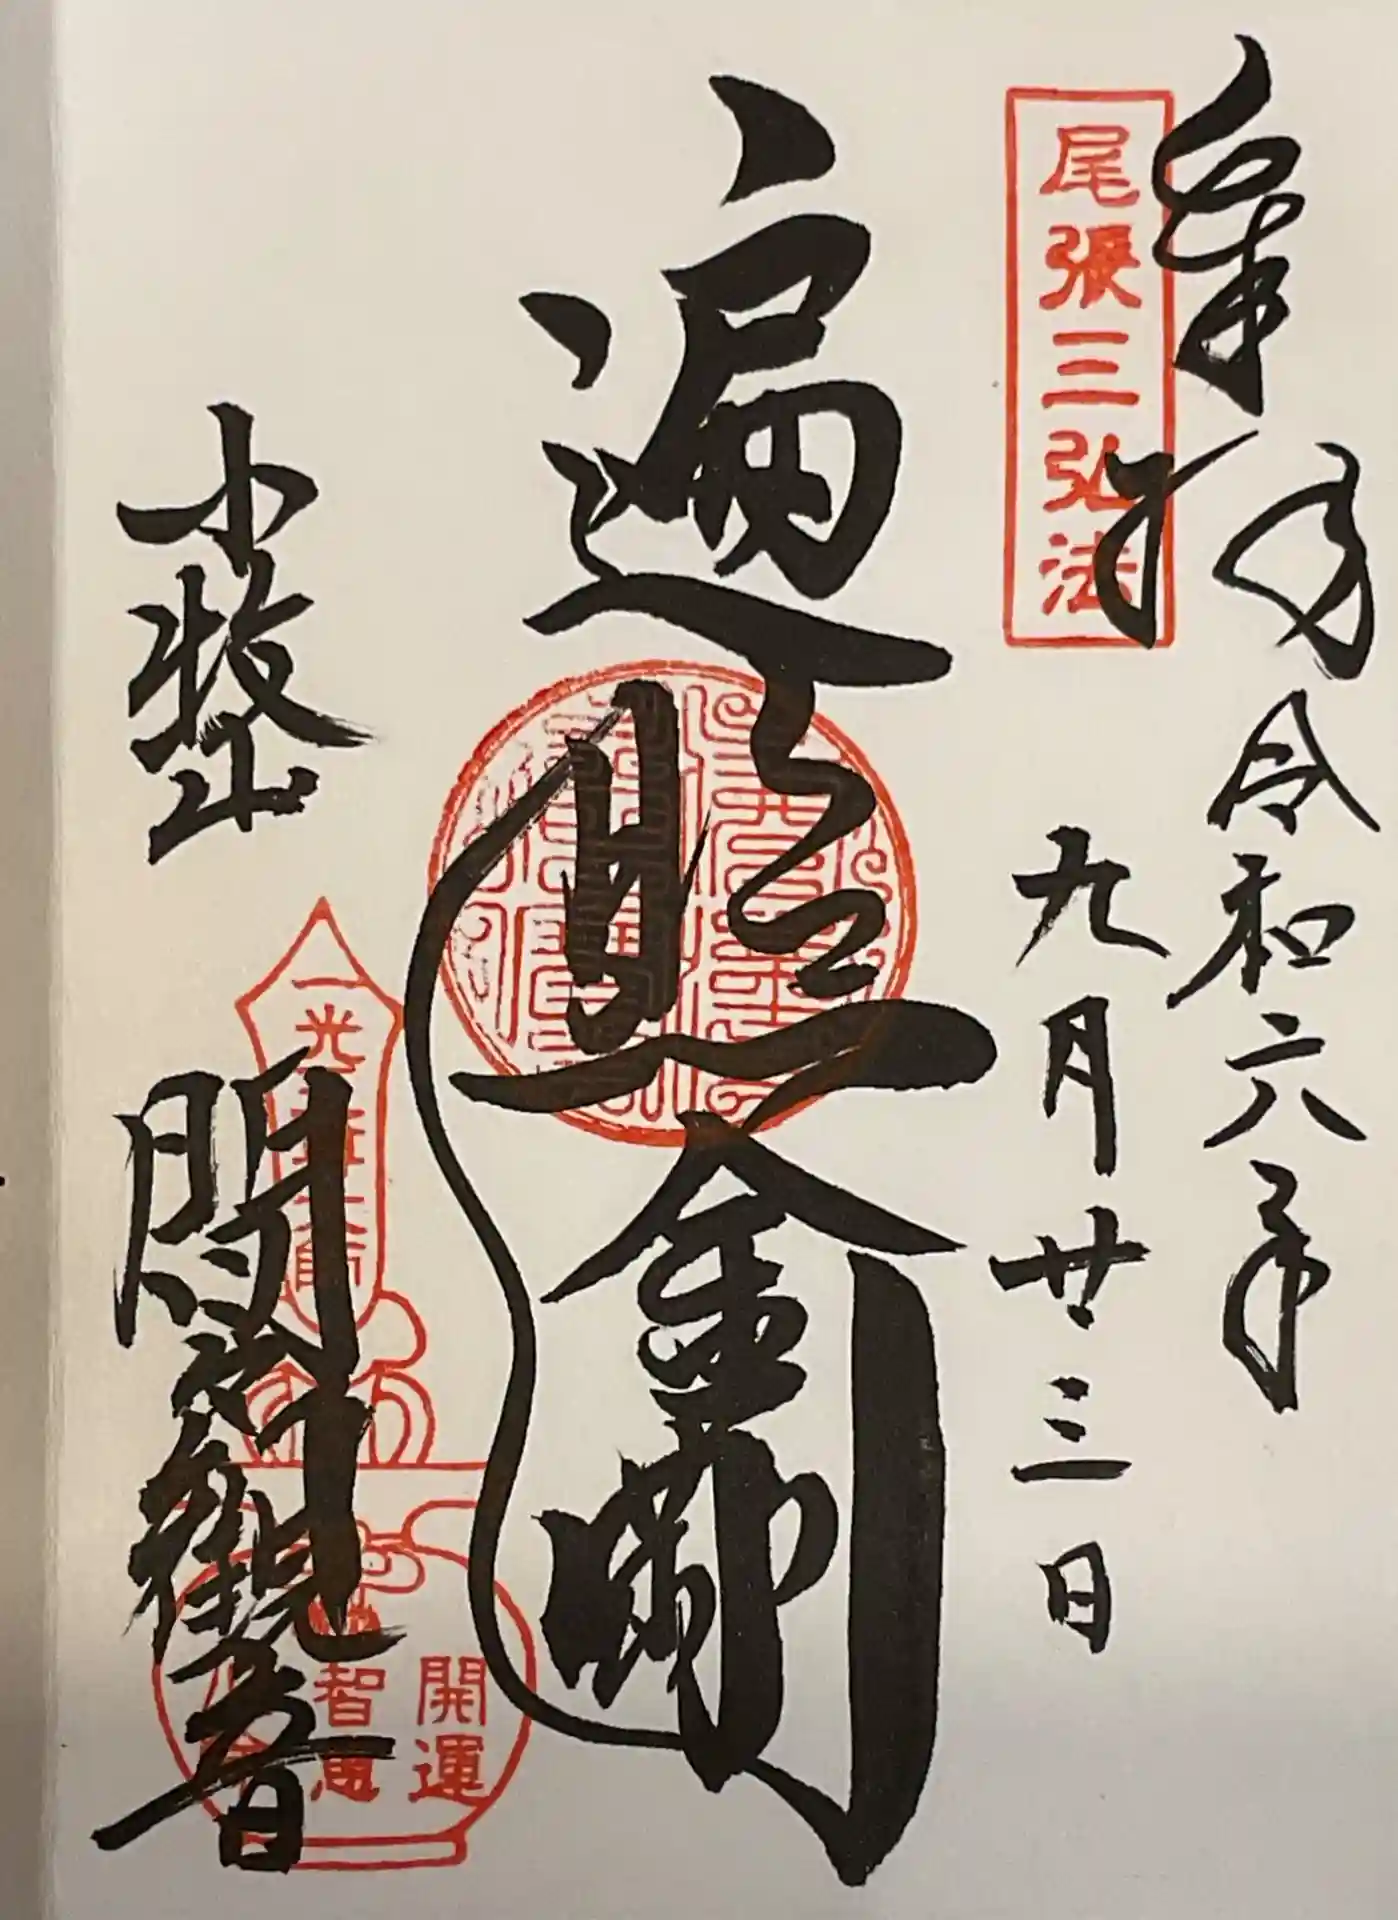 奉拝
令和六年
九月廿三日
尾張三弘法
遍照金剛
小牧山
間々觀音
開運
智